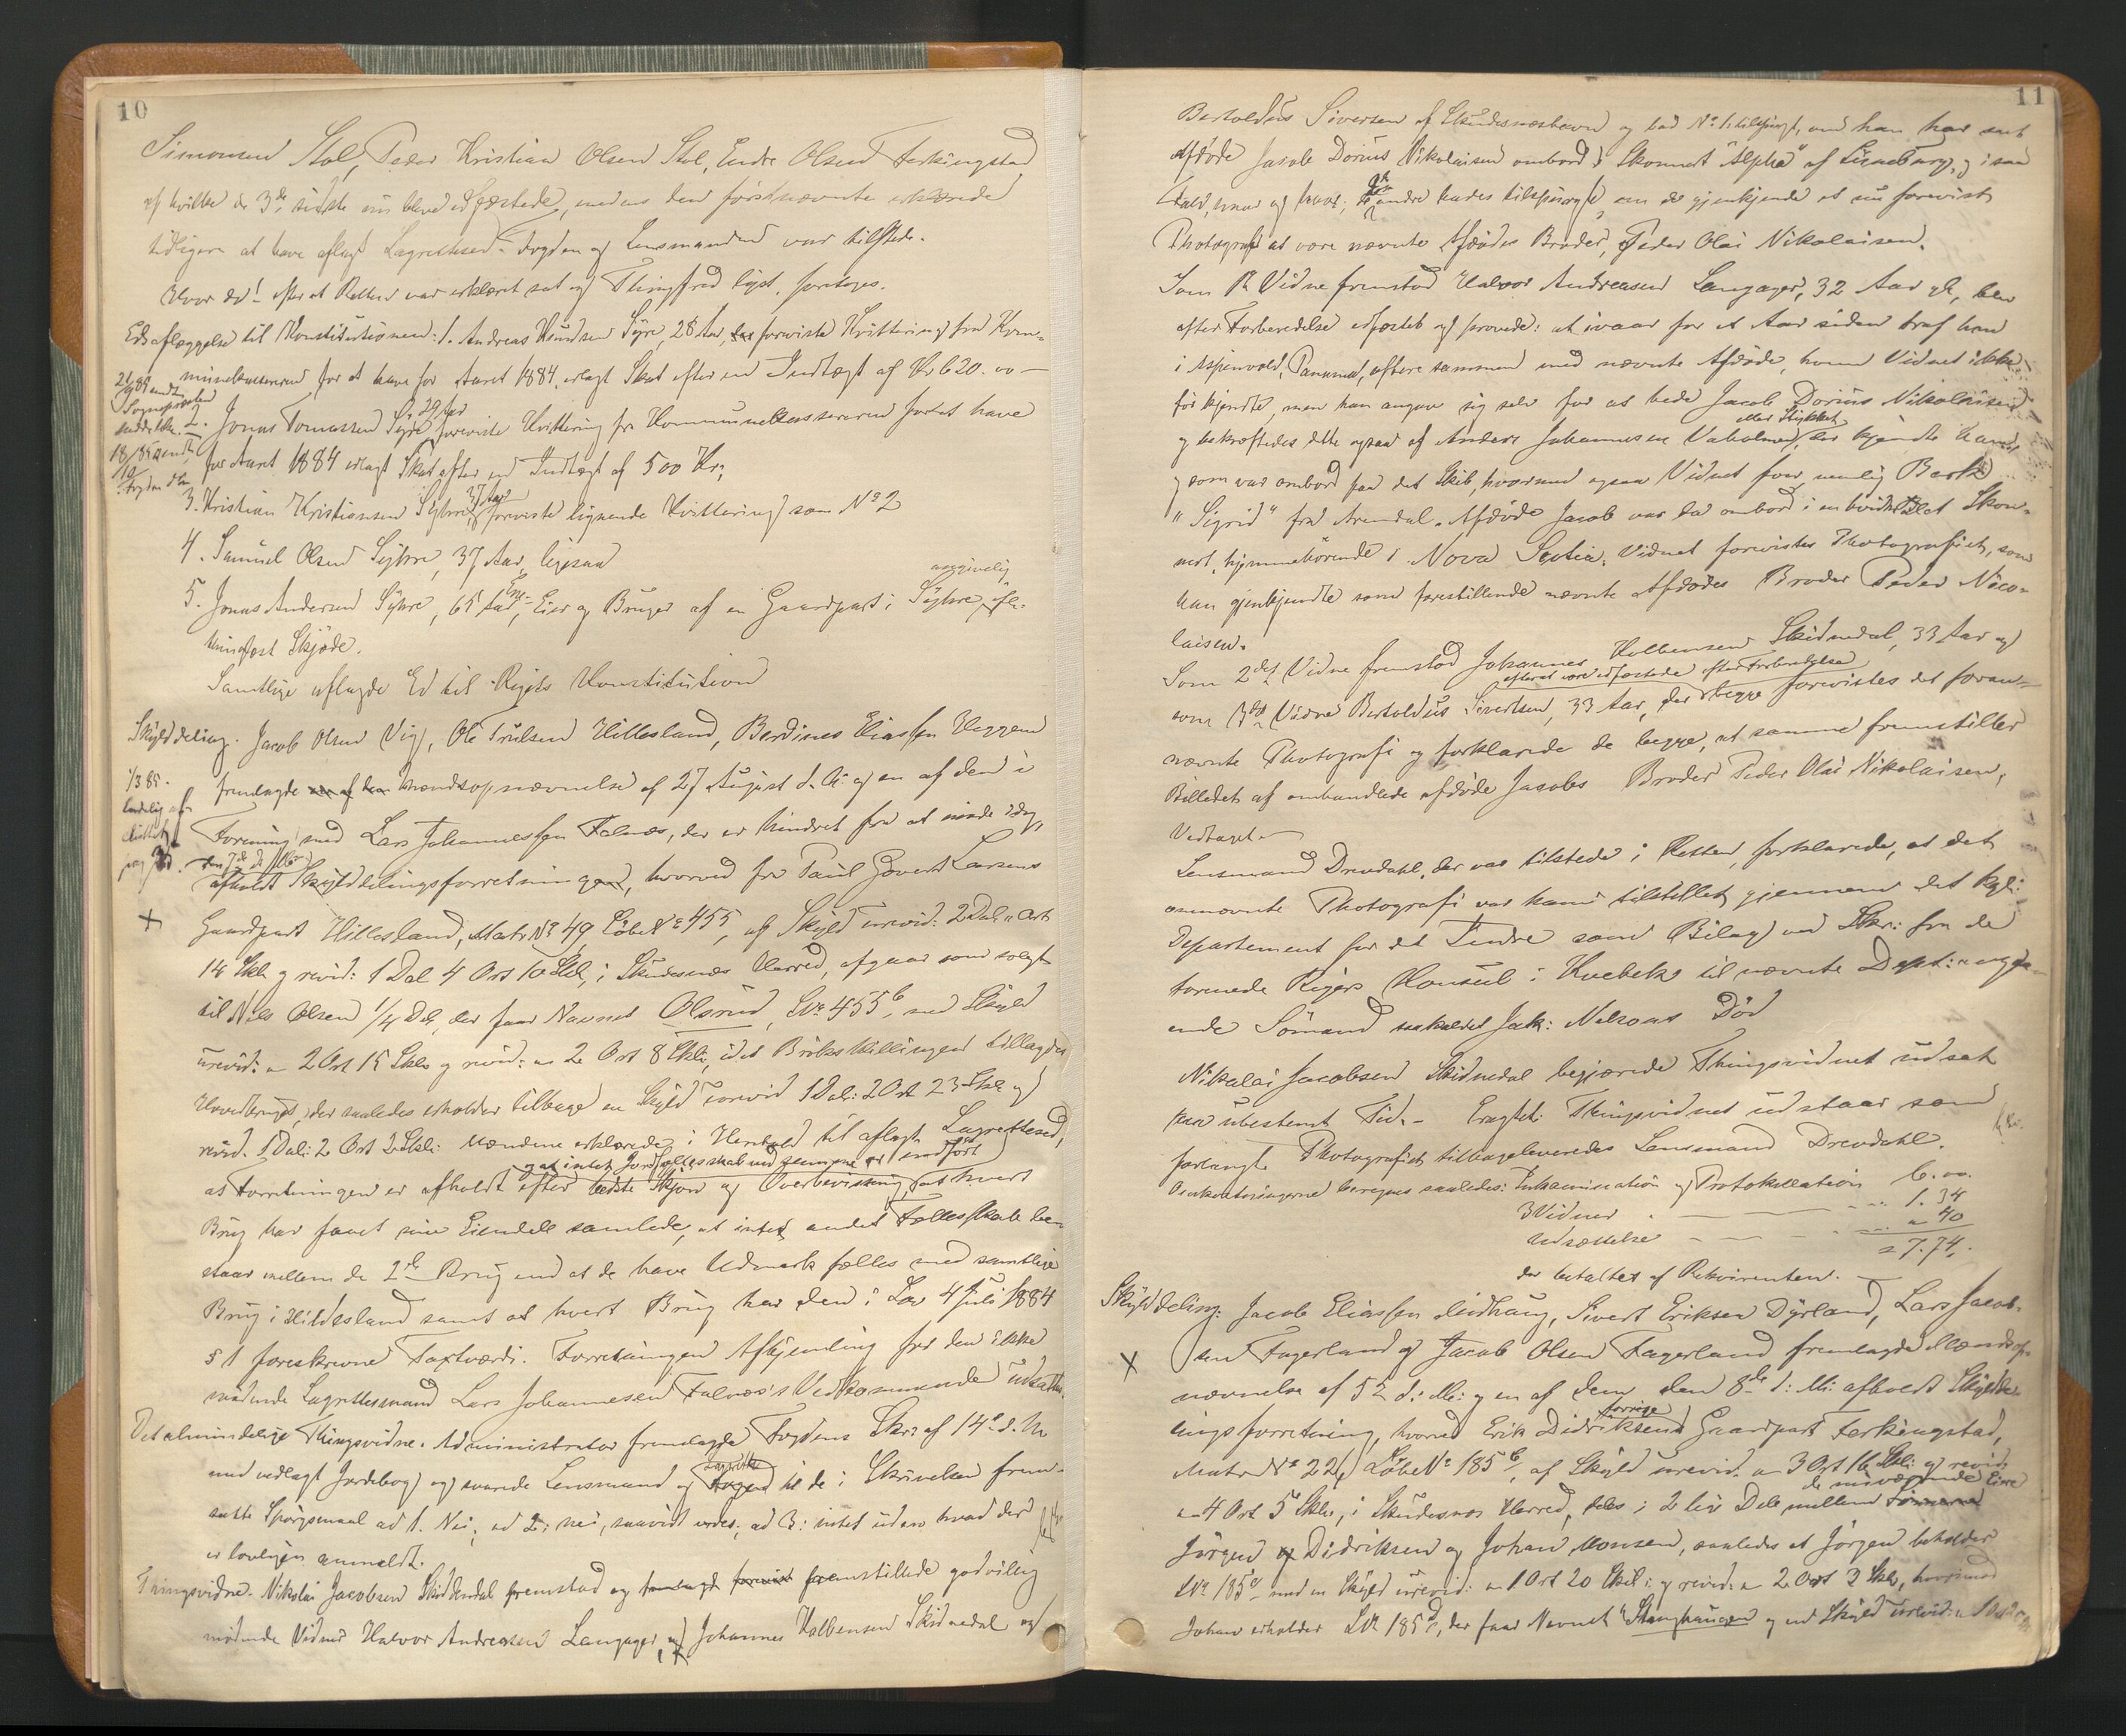 10
Simonsen Stol, Peder Kristian Olsen Stol, Endre Olsen Ferkingstad
af hvilke de 3de sidste nu bleve edfæstede, medens den førstnævnte erklærede
tidligere at have aflagt Lagrettesed. Fogden og Lensmanden var tilstede.
Hvor da! efter at Retten var erklæret sat og Thingfred lyst, foretoges.
Edsaflæggelse til Konstitutionen: 1. Andreas Knudsen Syre, 28 Aar, foreviste Kvittering fra Kom-
munekassereren for at have for Aaret 1884 erlagt Skat efter en Indtægt af Kr 620.00 —
2. Jonas Tomassen Syre, 29 Aar foreviste Kvittering fra Kommunekassereren for at have
for Aaret 1884 erlagt Skat efter en Indtægt af 500 Kr;
3. Kristian Kristiansen Syhre, 37 Aar foreviste lignende Kvittering som No 2
4. Samuel Olsen Syhre, 37 Aar, ligesaa
5. Jonas Andersen Syhre, 65 Aar, Eier og Bruger af en Gaardpart i Syhre, angivelig ifl.
thinglæst Skjøde.
Samtlige aflagde Ed til Rigets Konstitution
Skylddeling. Jacob Olsen Vig, Ole Trulsen Hillesland, Berdines Eliassen
1/3 85.
fremlagde Mændsopnævnelse af 27 August d. A. og en af dem i
Forening med Lars Johannessen Falnæs, der er hindret fra at møde idag,
den 7de d. M.
afholdt Skylddelingsforretning, hvorved fra Paul Govert Larsens
+
Gaardpart Hillesland, Matr No 49, Löbe No 455, af Skyld urevid: 2 Dal " Ort
14 Skl og revid: 1 Dal 4 Ort 10 Skl, i Skudesnæs Herred, afgaar som solgt
til Nils Olsen 1/4 Del, der faar Navnet Olsrud, LNo 455b, med Skyld
urevid: " 2 Ort 15 Skl og revid: " 2 Ort 8 Skl, idet Brökskillingen tillagdes
Hovedbruget, der saaledes erholder tilbage en Skyld urevid 1 Dal: 2 Ort 23 Skl og
revid. 1 Dal: 2 Ort 2 Skl: Mændene erklærede i Henhold til aflagt Lagrettesed,
at Forretningen er afholdt efter bedste Skjön og Overbevisning, at hvert
og at intet Jordfællesskab ved samme er indfört
Brug har faaet sine Eiendele samlede, at intet andet Fællesskab be-
staar mellem de 2de Brug end at de have Udmark fælles med samtlige
Brug i Hillesland samt at hvert Brug har den i Lov 4 Juli 1884
§ 1 foreskrevne Taxtværdi. Forretningen Afhjemling for den ikke
mødende Lagrettesmand Lars Johannesen Falnæs's Vedkommende udsattes.
Det almindelige Thingsvidne. Administrator fremlagde Fogdens Skr: af 14de d. M
med vedlagt Jordebog og svarede Lensmand og Lagrette til de i Skrivelsen frem-
satte Spörgsmaal ad 1. Nei; ad 2: nei, saavidt vides; ad 3: intet uden hvad der
er lovligen anmeldt.
Thingsvidne. Nikolai Jacobsen Skidnedal fremstod og fremstillede godvillig
mødende Vidner Halvor Andreasen Langager, Johannes Kolbensen Skidnedal og
11
Bertoldus Sivertsen af Skudesneshavn og bad No 1 tilspurgt, om han har seet
afdøde Jacob Dorius Nikolaisen ombord i Skonnert "Alpha" af Lüneburg, i saa
Fald, hvor og hvor; de andre bades tilspurgt, om de gjenkjende et nu forevist
Photografi at være nævnte Afdødes Broder, Peder Olai Nikolaisen.
Som 1te Vidne fremstod Halvor Andreasen Langager, 32 Aar gl, blev
efter Forberedelse edfæstet og provede: at ivaar for et Aar siden traf han
i Aspinwald, Panama, oftere sammen med nævnte Afdøde, hvem Vidnet ikke
för kjendte, men han angav sig selv for at hede Jacob Dorius Nikolaisen
og bekræftedes dette ogsaa af Anders Johannesen Vaholmen, eller Stykket der kjendte ham,
og som var ombord paa det Skib, hvormed ogsaa Vidnet foer, nemlig Bark
"Sigrid" fra Arendal. Afdøde Jacob var da ombord i en hvidmalet Skon-
nert, hjemmehörende i Nova Scotia. Vidnet forevistes Photografiet, som
han gjenkjendte som forestillende nævnte Afdødes Broder Peder Nico-
laisen.
Som 2det Vidne fremstod Johannes Kolbensen Skidnedal, 33 Aar og
efter at være edfæstede efter Forberedelse
som 3die Vidne Bertoldus Sivertsen, 33 Aar, der begge forevistes det foran-
nævnte Photografi og forklarede de begge, at samme fremstiller
Billedet af ombandlede afdøde Jacobs Broder Peder Olai Nikolaisen,
Vedtaget.
Lensmand Drevdahl, der var tilstede i Retten, forklarede, at det
omnævnte Photografi var ham tilstillet gjennem det kgl:
Departement for det Indre som Bilag ved Skr: fra de
forenede Rigers Konsul i Kvebek til nævnte Dept: angaa-
ende Sömand saakaldet Jak: Nelsons Död
Nikolai Jacobsen Skidnedal begjærede Thingsvidnet udsat
paa ubestemt Tid. – Eragtet: Thingsvidnet udstaar som
forlangt. Photografiet tilbageleveredes Lensmand Drevdahl.
Omkostningerne beregnes saaledes: Inkamination og Protokollation 6.00.
3 Vidner – 1.34
Udsættelse – " 40
= 7.74.
der betaltes af Rekvirenten.
Skylddeling: Jacob Eliassen Midhaug, Sivert Eriksen Dyrland, Lars Jacob-
+
sen Fagerland og Jacob Olsen Fagerland fremlagde Mændsop-
nævnelse af 5te d: M: og en af dem den 8de d: M: afholdt Skylde-
lingsforretning, hvorved Erik Didriksens forrige Gaardpart Ferkingstad,
Matr No 22, Löbe No 185b, af Skyld urevid. " 3 Ort 16 Skl: og revid:
" 4 Ort 5 Skl, i Skudesnæs Herred, deles i 2 lige Dele mellem de nuværende Eiere
Jörgen Didriksen og Johan Monsen, saaledes at Jörgen beholder
LNo 185b med en Skyld urevid: " 1 Ort 20 Skl: og revid: " 2 Ort 3 Skl, hvorimod
Johan erholder LNo 185d, der faar Navnet "Stonghaugen og en Skyld urevid: " 1 Ort